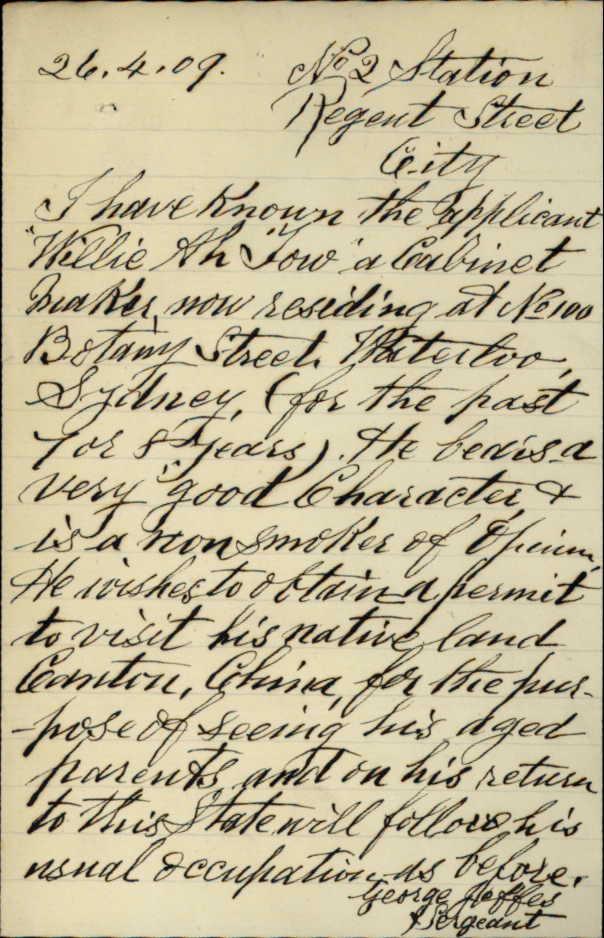 26.4.09. No 2 Station
Regent Street
City
I have known the applicant
"Willie Ah Tow" a Cabinet
maker, now residing at No 100
Botany Street. Waterloo,
Sydney, (for the past
7 or 8 years). He bears a
very good Character, &
is a non smoker of Opium,
He wishes to obtain a permit
to visit his native land
Canton, China, for the pur-
-pose of seeing his aged
parents, and on his return
to this State will follow his
usual occupation as before.
George Jeffes
Sergeant